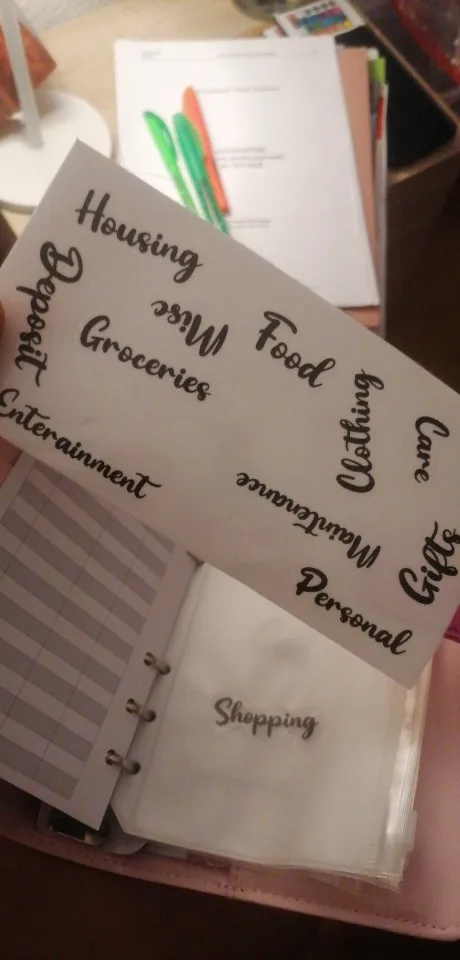 Housing
Deposit
Misc
Groceries
Food
Clothing
Care
Enterainment
Maintenance
Gifts
Personal
Shopping